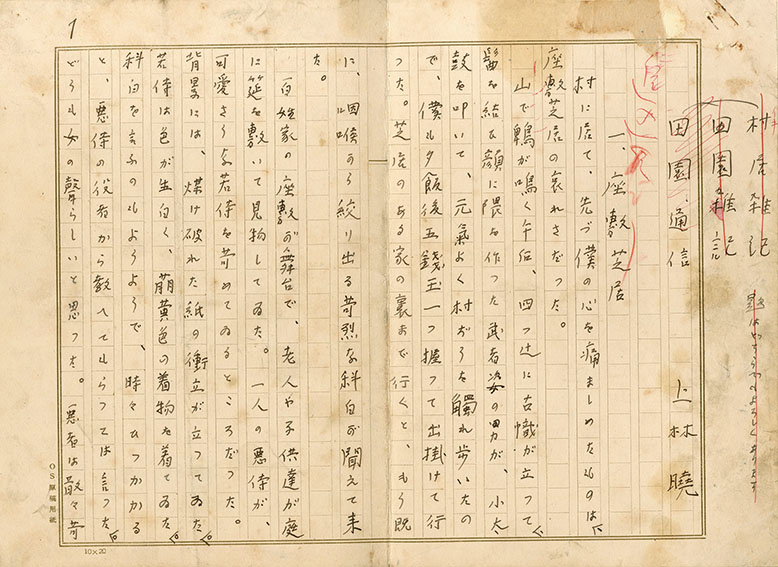 1
村居雑記
田園雑記
田園通信
上林暁
一、座敷芝居
村に居て、先づ僕の心を痛ましめたものは、
座敷芝居の哀れさだつた。
山で鵯が鳴く午后、四つ辻に古幟が立つて、
髷を結ひ顔に隈を作つた武者姿の男が、小太
鼓を叩いて、元氣よく村ぢうを觸れ歩いたの
で、僕も夕飯後五錢玉一つ握つて出掛けて行
つた。芝居のある家の裏まで行くと、もう既
に、咽喉から絞り出る苛烈な科白が聞えて来
た。
百姓家の座敷が舞台で、老人や子供達が庭
に筵を敷いて見物してゐた。一人の悪侍が、
可愛さうな若侍を苛めてゐるところだつた。
背景には、煤け破れた紙の衝立が立つてゐた。
若侍は色が生白く、萠黄色の着物を着てゐた。
科白を言ふのもようようで、時々ひつかかる
と、悪侍の役者から教へてもらつては言つた。
どうも女の聲らしいと思つた。悪者は散々苛
OS原稿用紙
10×20